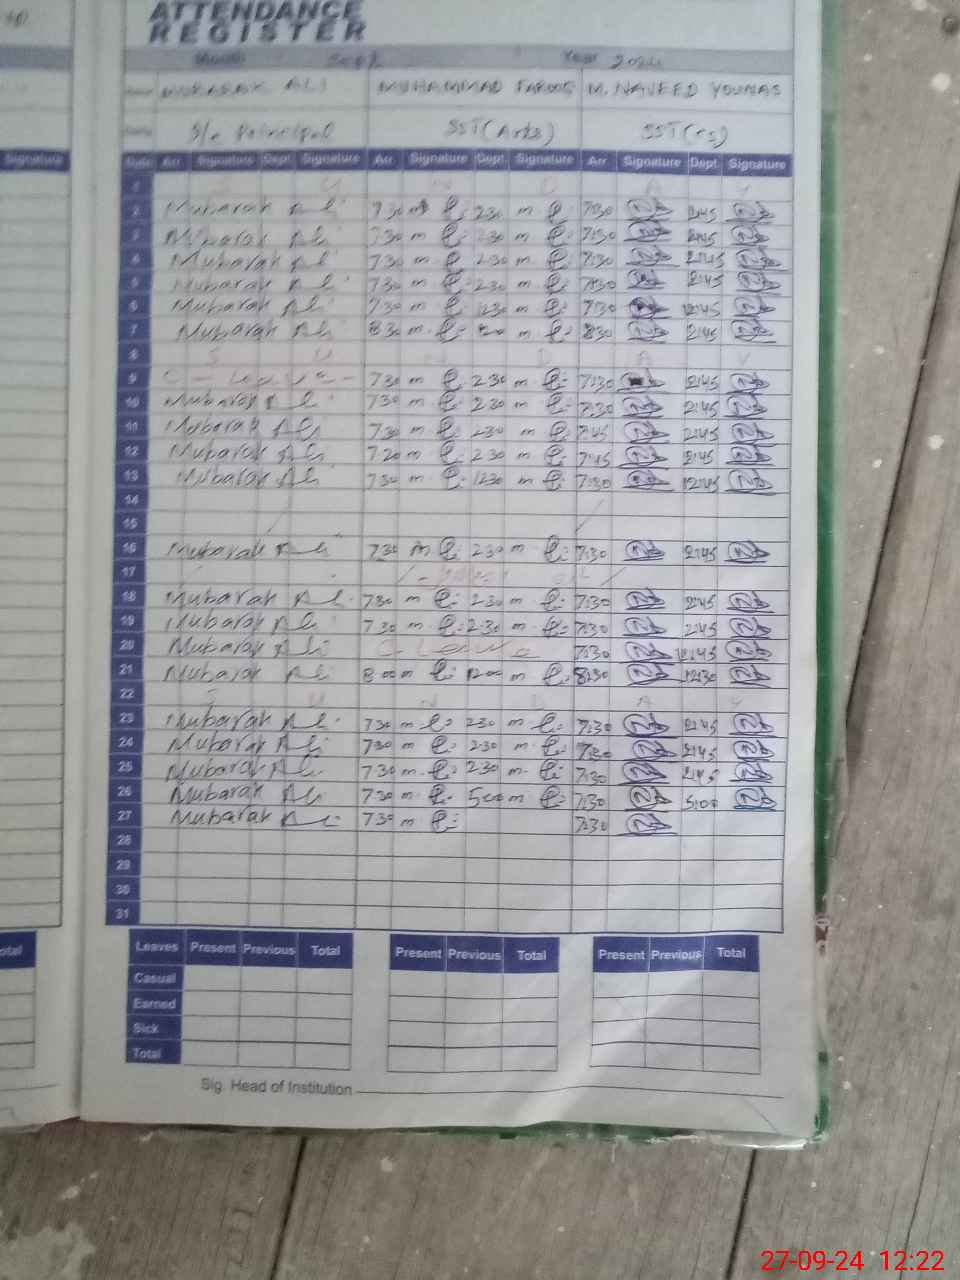 ATTENDANCE
REGISTER
Month Sept Year 2024
MUBARAK ALI MUHAMMAD FAROOQ M. NAVEED YOUNAS
S/o Principal SST (Arts) SST (CS)
Signature Date Arr. Signature Dept. Signature Arr. Signature Dept. Signature Arr. Signature Dept. Signature
1 S U N D A Y
2 Mubarak Ali 730 m 230 m 7:30 2:45
3 Mubarak Ali 730 m 230 m 7:30 2:45
4 Mubarak Ali 730 m 230 m 7:30 2:45
5 Mubarak Ali 730 m 230 m 7:30 2:45
6 Mubarak Ali 730 m 1230 m 7:30 12:45
7 Mubarak Ali 830 m m 8:30 2:45
8 S U N D A Y
9 C-Leave- 730 m 230 m 7:30 2:45
10 Mubarak Ali 730 m 230 m 7:30 2:45
11 Mubarak Ali 730 m 230 m 7:45 2:45
12 Mubarak Ali 720 m 230 m 7:45 2:45
13 Mubarak Ali 730 m 1230 m 7:30 12:45
14
15
16 Mubarak Ali 730 m 230 m 7:30 2:45
17
18 Mubarak Ali 730 m 230 m 7:30 2:45
19 Mubarak Ali 730 m 2:30 m 7:30 2:45
20 Mubarak Ali C-Leave 7:30 12:45
21 Mubarak Ali 800 m 1200 m 8:30 12:30
22 S U N D A Y
23 Mubarak Ali 730 m 230 m 7:30 2:45
24 Mubarak Ali 730 m 2:30 m 7:30 2:45
25 Mubarak Ali 7:30 m 2:30 m 7:30 2:45
26 Mubarak Ali 7:30 m 500 m 7:30 5:00
27 Mubarak Ali 730 m 7:30
28
29
30
31
Leaves Present Previous Total Present Previous Total Present Previous Total
Casual
Earned
Sick
Total
Sig. Head of Institution
27-09-24 12:22